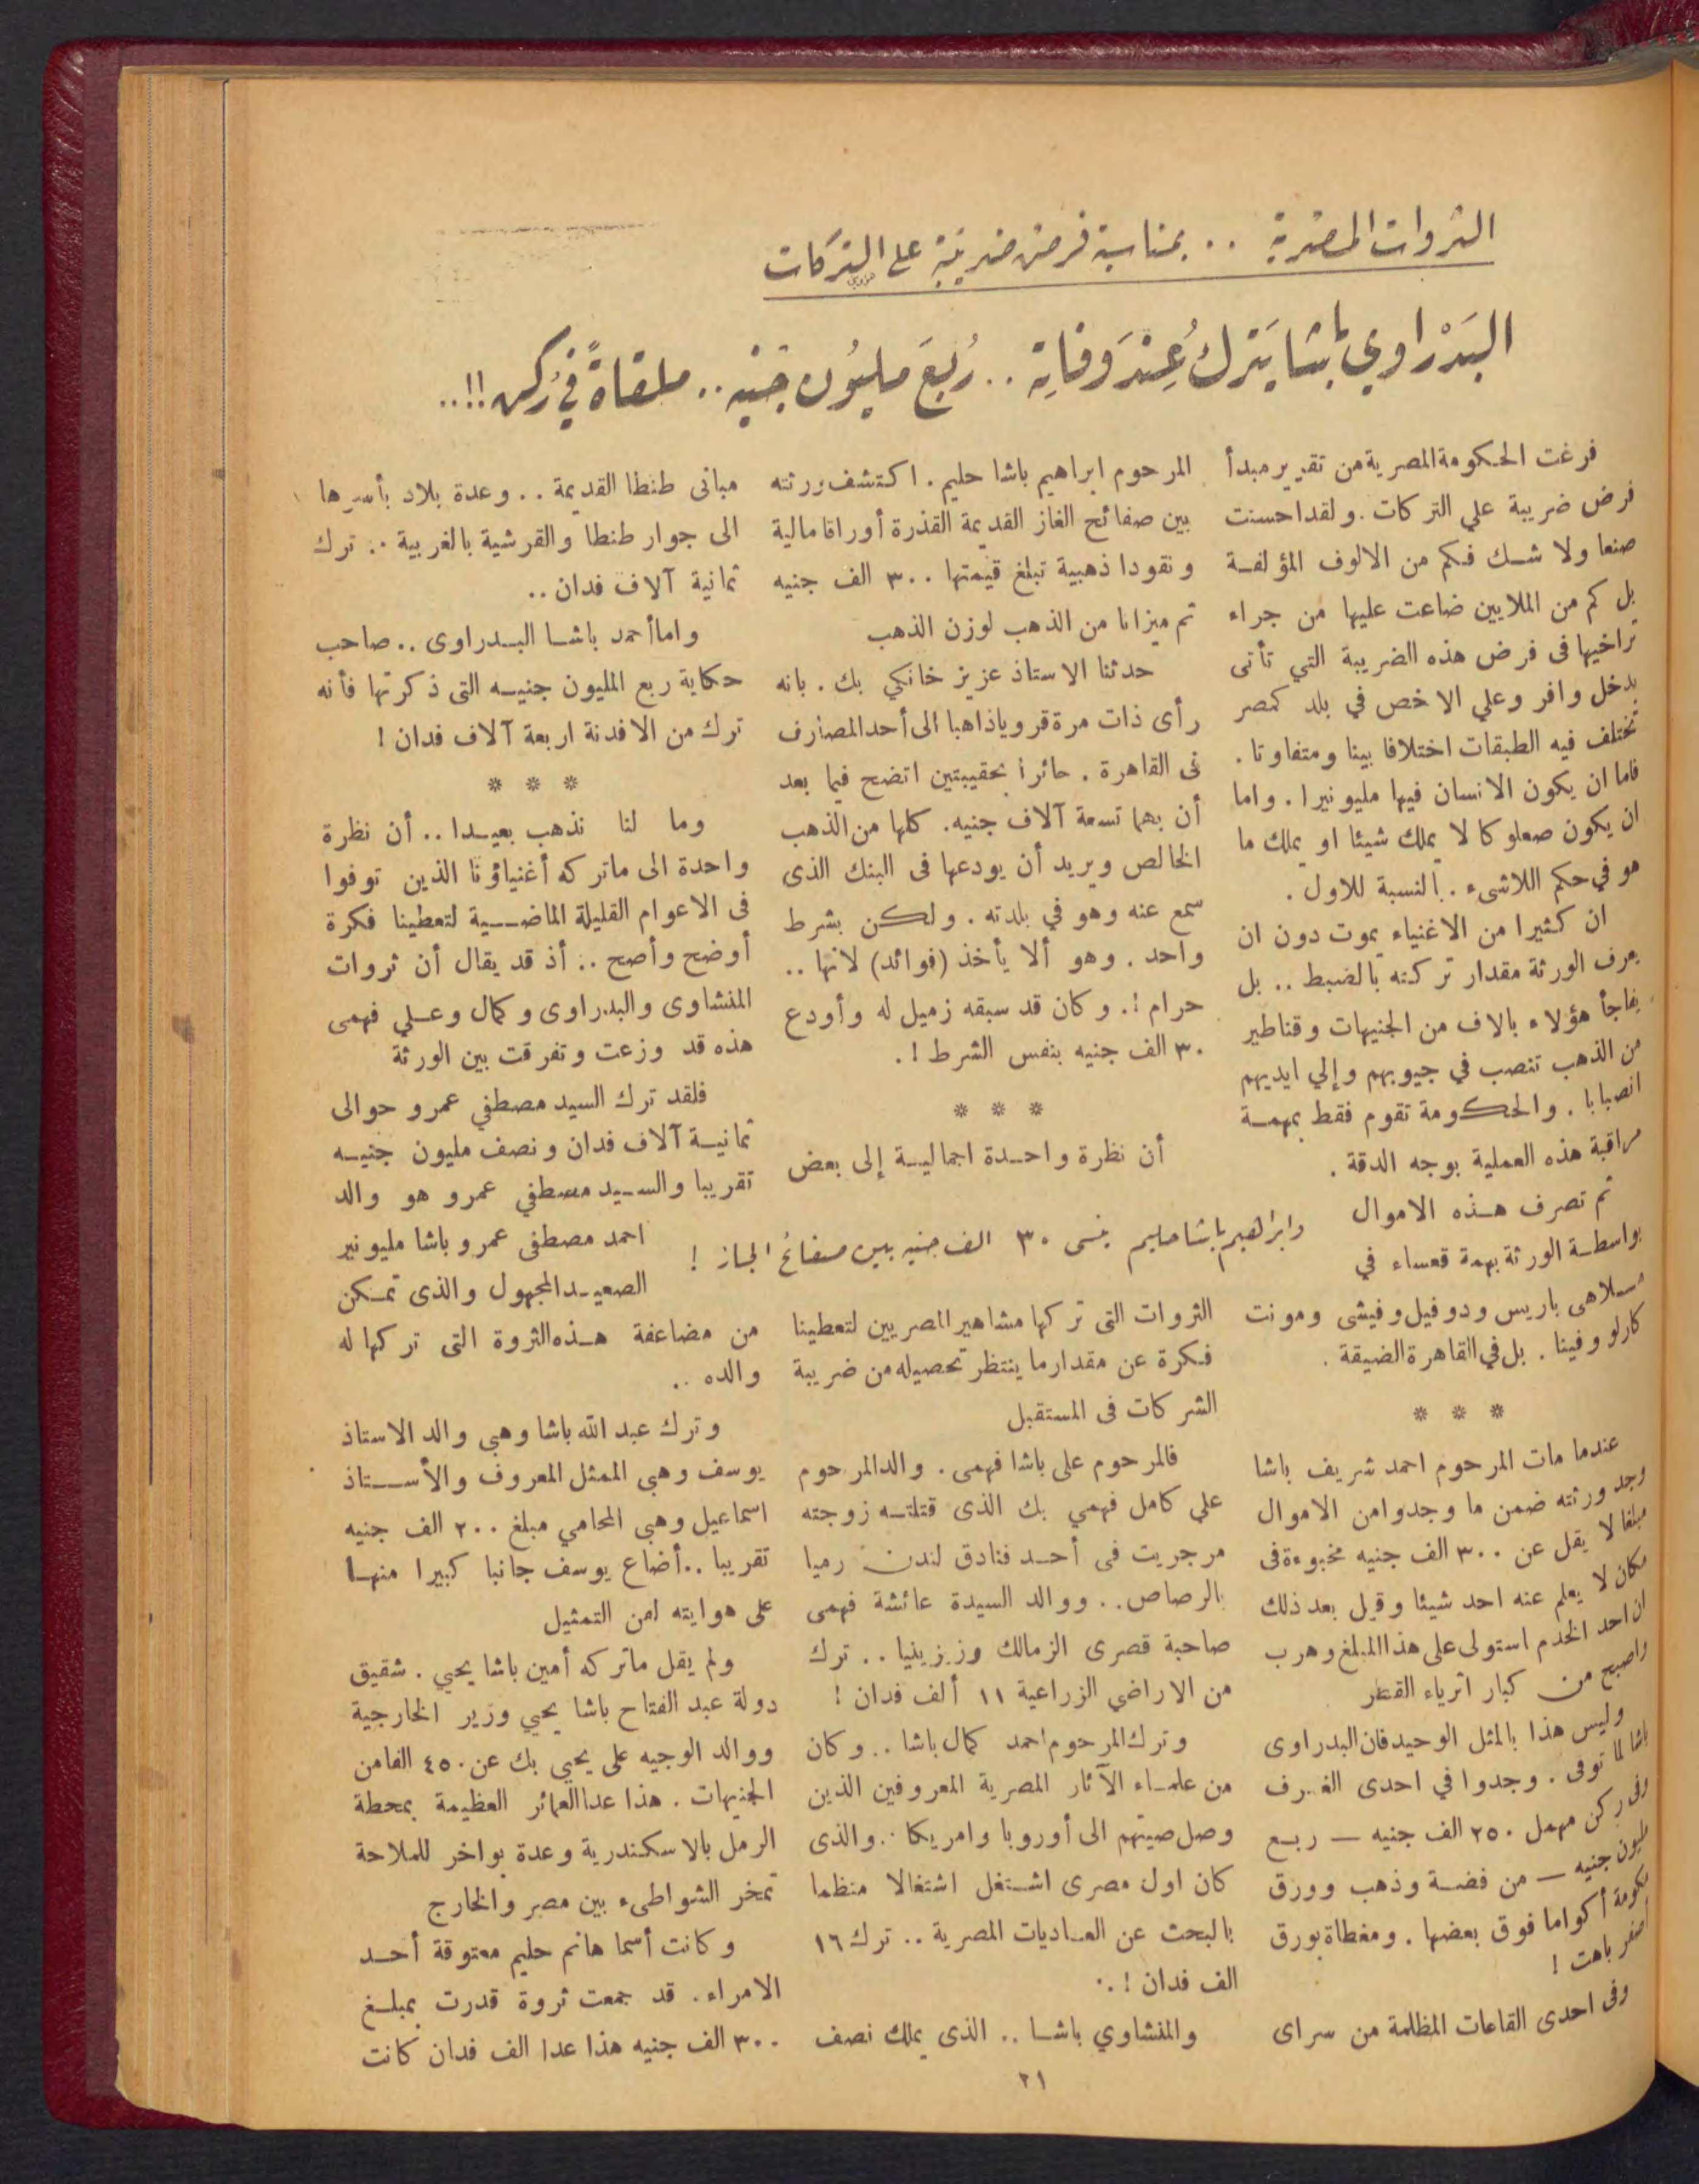 الثروات المصرية .. بمناسبة فرض ضريبة على التركات
البدراوي باشا يترك عند وفاته .. ربع مليون جنيه .. ملقاة في ركن !!..
فرغت الحكومة المصرية من تقرير مبدأ
فرض ضريبة علي التركات . ولقد احسنت
صنعا ولا شك فكم من الالوف المؤلفة
بل كم من الملايين ضاعت عليها من جراء
تراخيها فى فرض هذه الضريبة التي تأتى
بدخل وافر وعلي الاخص في بلد كمصر
تختلف فيه الطبقات اختلافا بينا ومتفاوتا .
فاما ان يكون الانسان فيها مليونيرا . واما
ان يكون صعلوكا لا يملك شيئا او يملك ما
هو في حكم اللاشىء . بالنسبة للاول .
ان كثيرا من الاغنياء يموت دون ان
يعرف الورثة مقدار تركته بالضبط .. بل
يفاجأ هؤلاء بالاف من الجنيهات وقناطير
من الذهب تنصب في جيوبهم وإلي ايديهم
انصبابا . والحكومة تقوم فقط بمهمة
مراقبة هذه العملية بوجه الدقة .
ثم تصرف هذه الاموال
بواسطة الورثة بهمة قعساء في
ملاهى باريس ودوفيل وفيشى ومونت
كارلو وفينا . بل في القاهرة الضيقة .
* * *
عندما مات المرحوم احمد شريف باشا
وجد ورثته ضمن ما وجدوا من الاموال
مبلغا لا يقل عن ٣٠٠ الف جنيه مخبوءة فى
مكان لا يعلم عنه احد شيئا وقيل بعد ذلك
ان احد الخدم استولى على هذا المبلغ وهرب
واصبح من كبار اثرياء القطر
وليس هذا بالمثل الوحيد فان البدراوى
باشا لما توفى . وجدوا في احدى الغرف
وفى ركن مهمل ٢٥٠ الف جنيه — ربع
مليون جنيه — من فضة وذهب وورق
مكومة أكواما فوق بعضها . ومغطاة بورق
اصفر باهت !
وفى احدى القاعات المظلمة من سراى
المرحوم ابراهيم باشا حليم . اكتشف ورثته
بين صفائح الغاز القديمة القذرة أوراقا مالية
ونقودا ذهبية تبلغ قيمتها ٣٠٠ الف جنيه
ثم ميزانا من الذهب لوزن الذهب
حدثنا الاستاذ عزيز خانكي بك . بانه
رأى ذات مرة قرويا ذاهبا الى أحد المصارف
فى القاهرة . حائرا بحقيبتين اتضح فيما بعد
أن بهما تسعة آلاف جنيه . كلها من الذهب
الخالص ويريد أن يودعها فى البنك الذى
سمع عنه وهو في بلدته . ولكن بشرط
واحد . وهو ألا يأخذ (فوائد) لانها ..
حرام !. وكان قد سبقه زميل له وأودع
٣٠ الف جنيه بنفس الشرط ! .
* * *
أن نظرة واحدة اجمالية إلى بعض
وابراهيم باشا حليم ينسى ٣٠ الف جنيه بين صفائح الجاز !
الثروات التى تركها مشاهير المصريين لتعطينا
فكرة عن مقدار ما ينتظر تحصيله من ضريبة
الشركات فى المستقبل
فالمرحوم على باشا فهمى . والد المرحوم
علي كامل فهمي بك الذى قتلته زوجته
مرجريت فى أحد فنادق لندن رميا
بالرصاص .. ووالد السيدة عائشة فهمى
صاحبة قصرى الزمالك وزيزينيا .. ترك
من الاراضي الزراعية ١١ ألف فدان !
وترك المرحوم احمد كمال باشا .. وكان
من علماء الآثار المصرية المعروفين الذين
وصل صيتهم الى أوروبا وامريكا .. والذى
كان اول مصرى اشتغل اشتغالا منظما
بالبحث عن العاديات المصرية .. ترك ١٦
الف فدان ! ..
والمنشاوي باشا .. الذى يملك نصف
مبانى طنطا القديمة .. وعدة بلاد بأسرها
الى جوار طنطا والقرشية بالغربية .. ترك
ثمانية آلاف فدان ..
واما أحمد باشا البدراوى .. صاحب
حكاية ربع المليون جنيه التى ذكرتها فأنه
ترك من الافدنة اربعة آلاف فدان !
* * *
وما لنا نذهب بعيدا .. أن نظرة
واحدة الى ماتركه أغنياؤنا الذين توفوا
فى الاعوام القليلة الماضية لتعطينا فكرة
أوضح وأصح .. أذ قد يقال أن ثروات
المنشاوى والبدراوى وكمال وعلي فهمى
هذه قد وزعت وتفرقت بين الورثة
فلقد ترك السيد مصطفي عمرو حوالى
ثمانية آلاف فدان ونصف مليون جنيه
تقريبا والسيد مصطفي عمرو هو والد
احمد مصطفى عمرو باشا مليونير
الصعيد المجهول والذى تمكن
من مضاعفة هذه الثروة التى تركها له
والده ..
وترك عبد الله باشا وهبى والد الاستاذ
يوسف وهبى الممثل المعروف والأستاذ
اسماعيل وهبى المحامي مبلغ ٢٠٠ الف جنيه
تقريبا .. أضاع يوسف جانبا كبيرا منها
على هوايته لفن التمثيل
ولم يقل ماتركه أمين باشا يحيي . شقيق
دولة عبد الفتاح باشا يحيي وزير الخارجية
ووالد الوجيه على يحيي بك عن ٤٥٠ الفا من
الجنيهات . هذا عدا العمائر العظيمة بمحطة
الرمل بالاسكندرية وعدة بواخر للملاحة
تمخر الشواطىء بين مصر والخارج
وكانت أسما هانم حليم معتوقة أحد
الامراء . قد جمعت ثروة قدرت بمبلغ
٣٠٠ الف جنيه هذا عدا الف فدان كانت
٢١